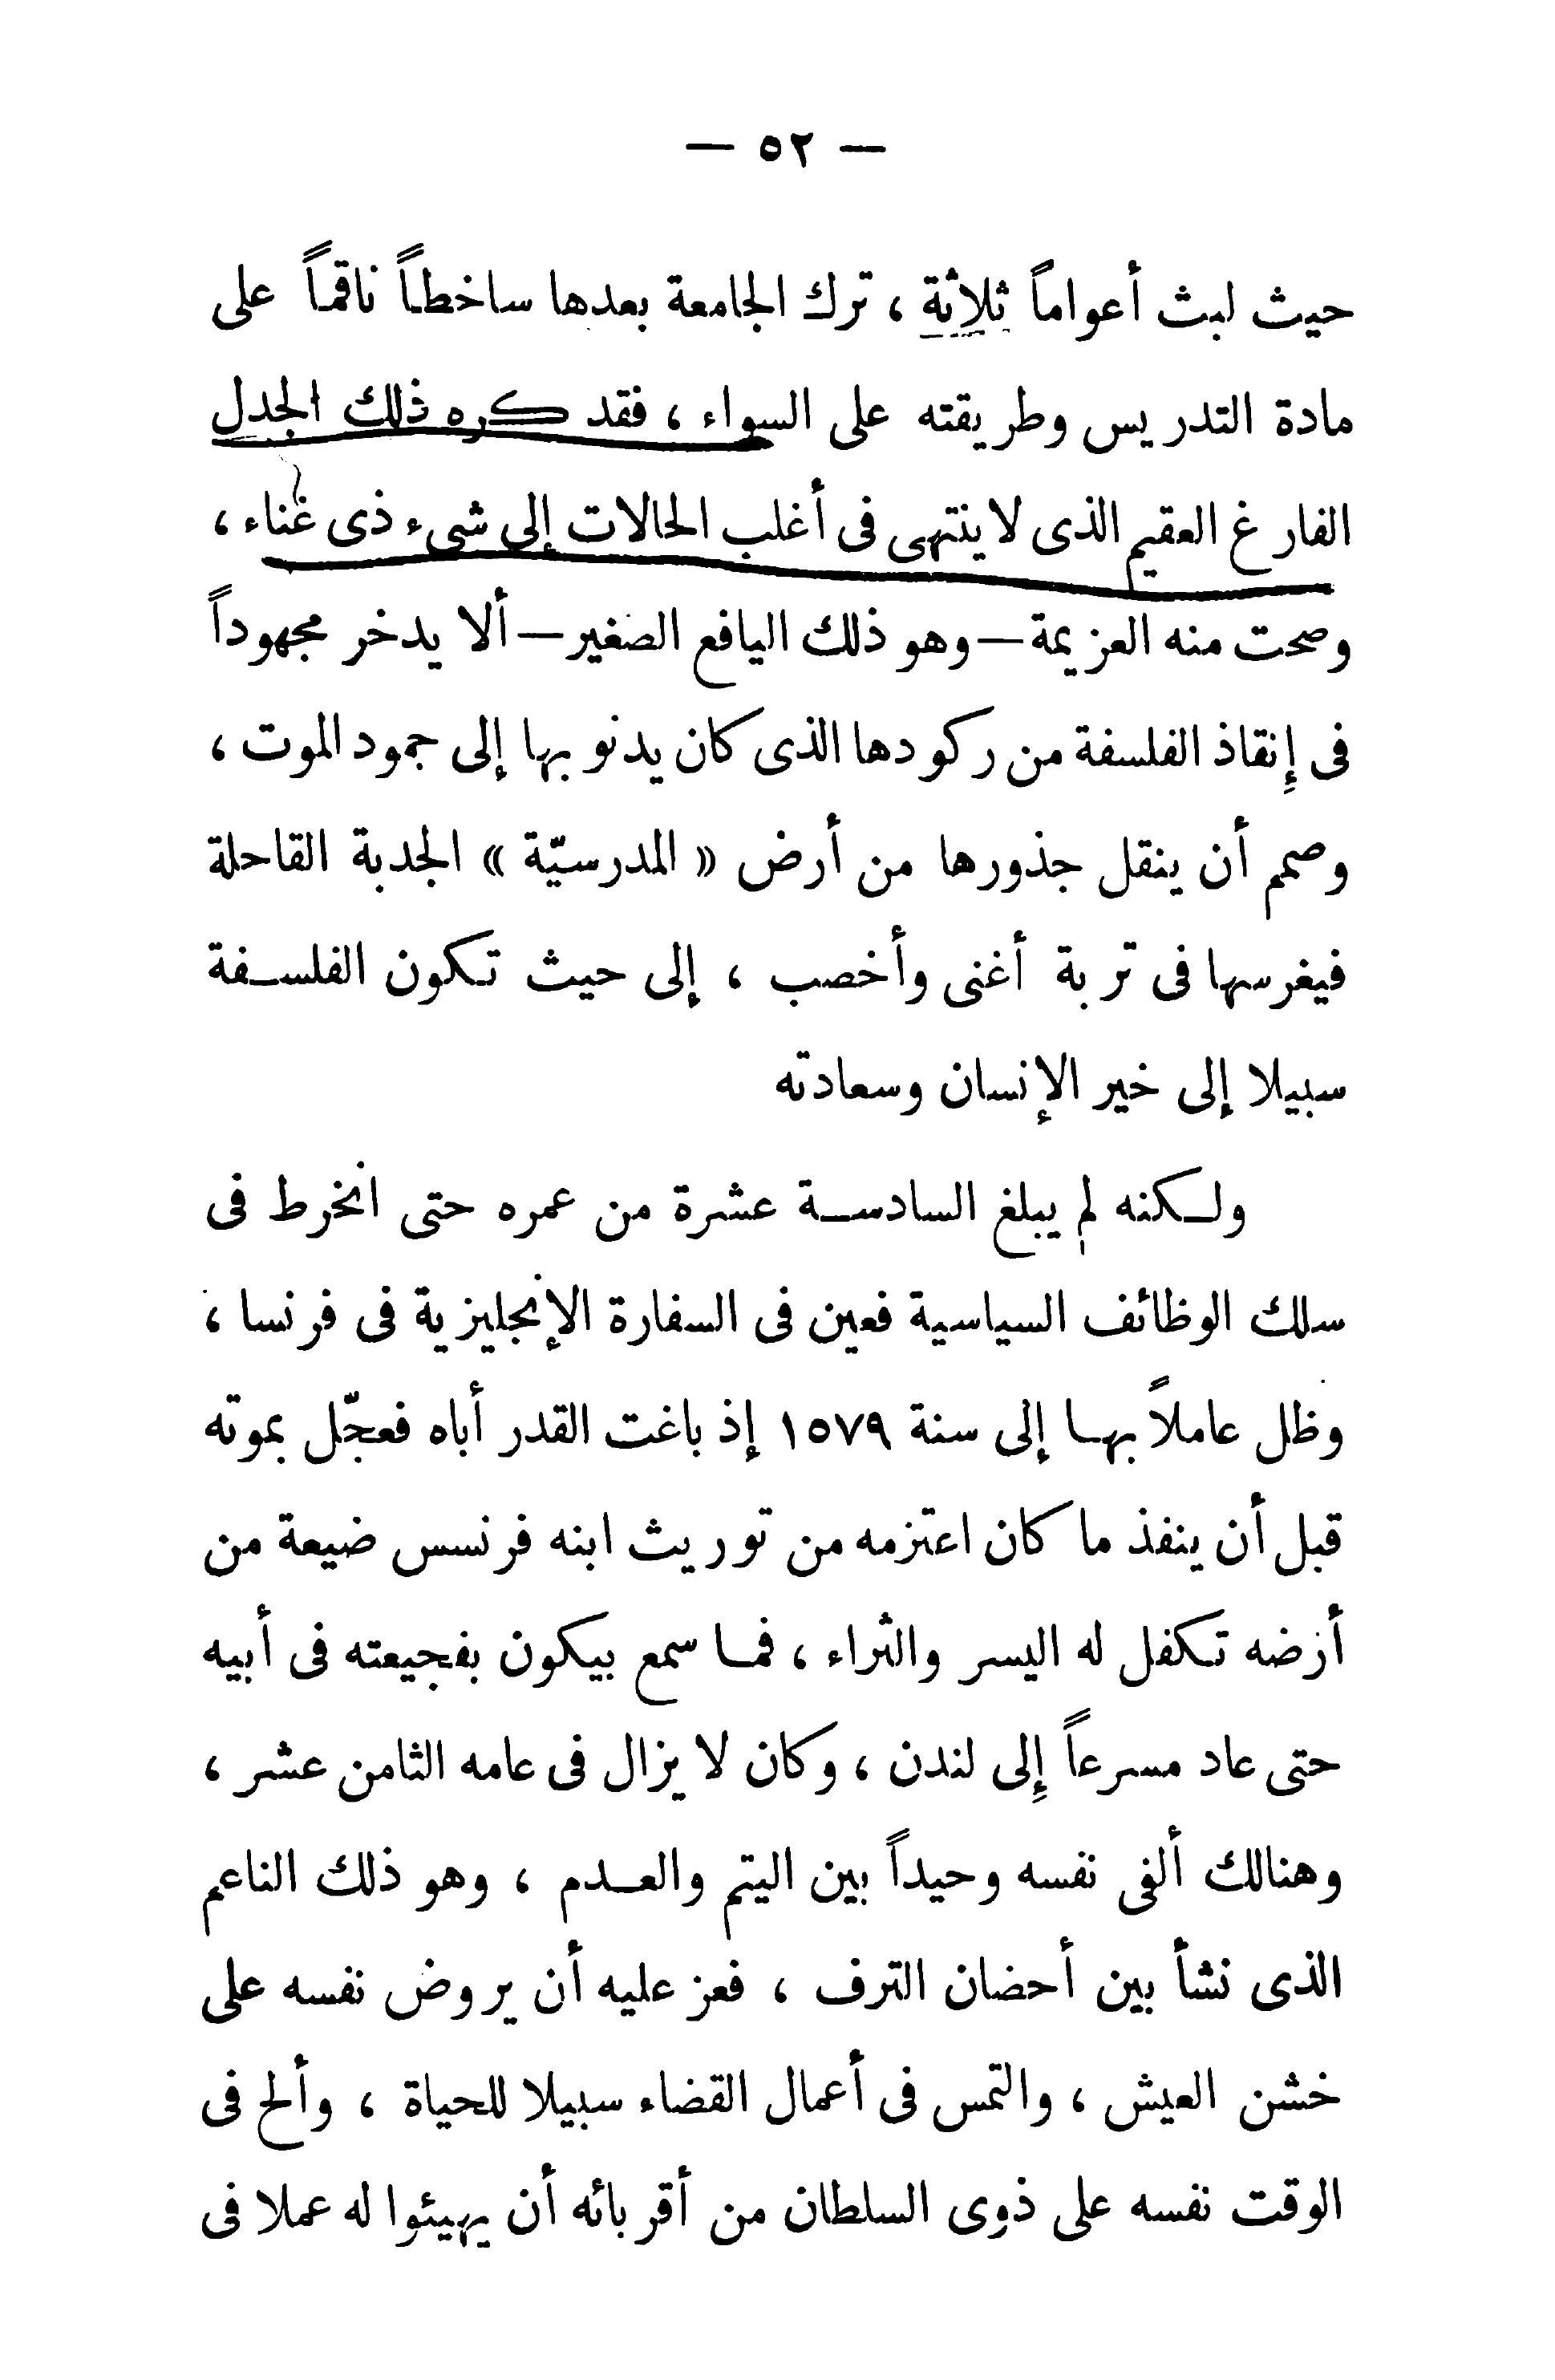 — ٥٢ —
حيث لبث أعواماً ثلاثة ، ترك الجامعة بعدها ساخطاً ناقماً على
مادة التدريس وطريقته على السواء ، فقد كره ذلك الجدل
الفارغ العقيم الذى لا ينتهى فى أغلب الحالات إلى شىء ذى غناء ،
وصحت منه العزيمة — وهو ذلك اليافع الصغير — ألا يدخر مجهوداً
فى إنقاذ الفلسفة من ركودها الذى كان يدنو بها إلى جمود الموت ،
وصمم أن ينقل جذورها من أرض « المدرسيّة » الجدبة القاحلة
فيغرسها فى تربة أغنى وأخصب ، إلى حيث تكون الفلسفة
سبيلا إلى خير الإنسان وسعادته
ولكنه لم يبلغ السادسة عشرة من عمره حتى انخرط فى
سلك الوظائف السياسية فعين فى السفارة الإنجليزية فى فرنسا ،
وظل عاملاً بها إلى سنة ١٥٧٩ إذ باغت القدر أباه فعجّل بموته
قبل أن ينفذ ما كان اعتزمه من توريث ابنه فرنسس ضيعة من
أرضه تكفل له اليسر والثراء ، فما سمع بيكون بفجيعته فى أبيه
حتى عاد مسرعاً إلى لندن ، وكان لا يزال فى عامه الثامن عشر ،
وهنالك ألفى نفسه وحيداً بين اليتم والعدم ، وهو ذلك الناعم
الذى نشأ بين أحضان الترف ، فعز عليه أن يروض نفسه على
خشن العيش ، والتمس فى أعمال القضاء سبيلا للحياة ، وألح فى
الوقت نفسه على ذوى السلطان من أقربائه أن يهيئوا له عملا فى